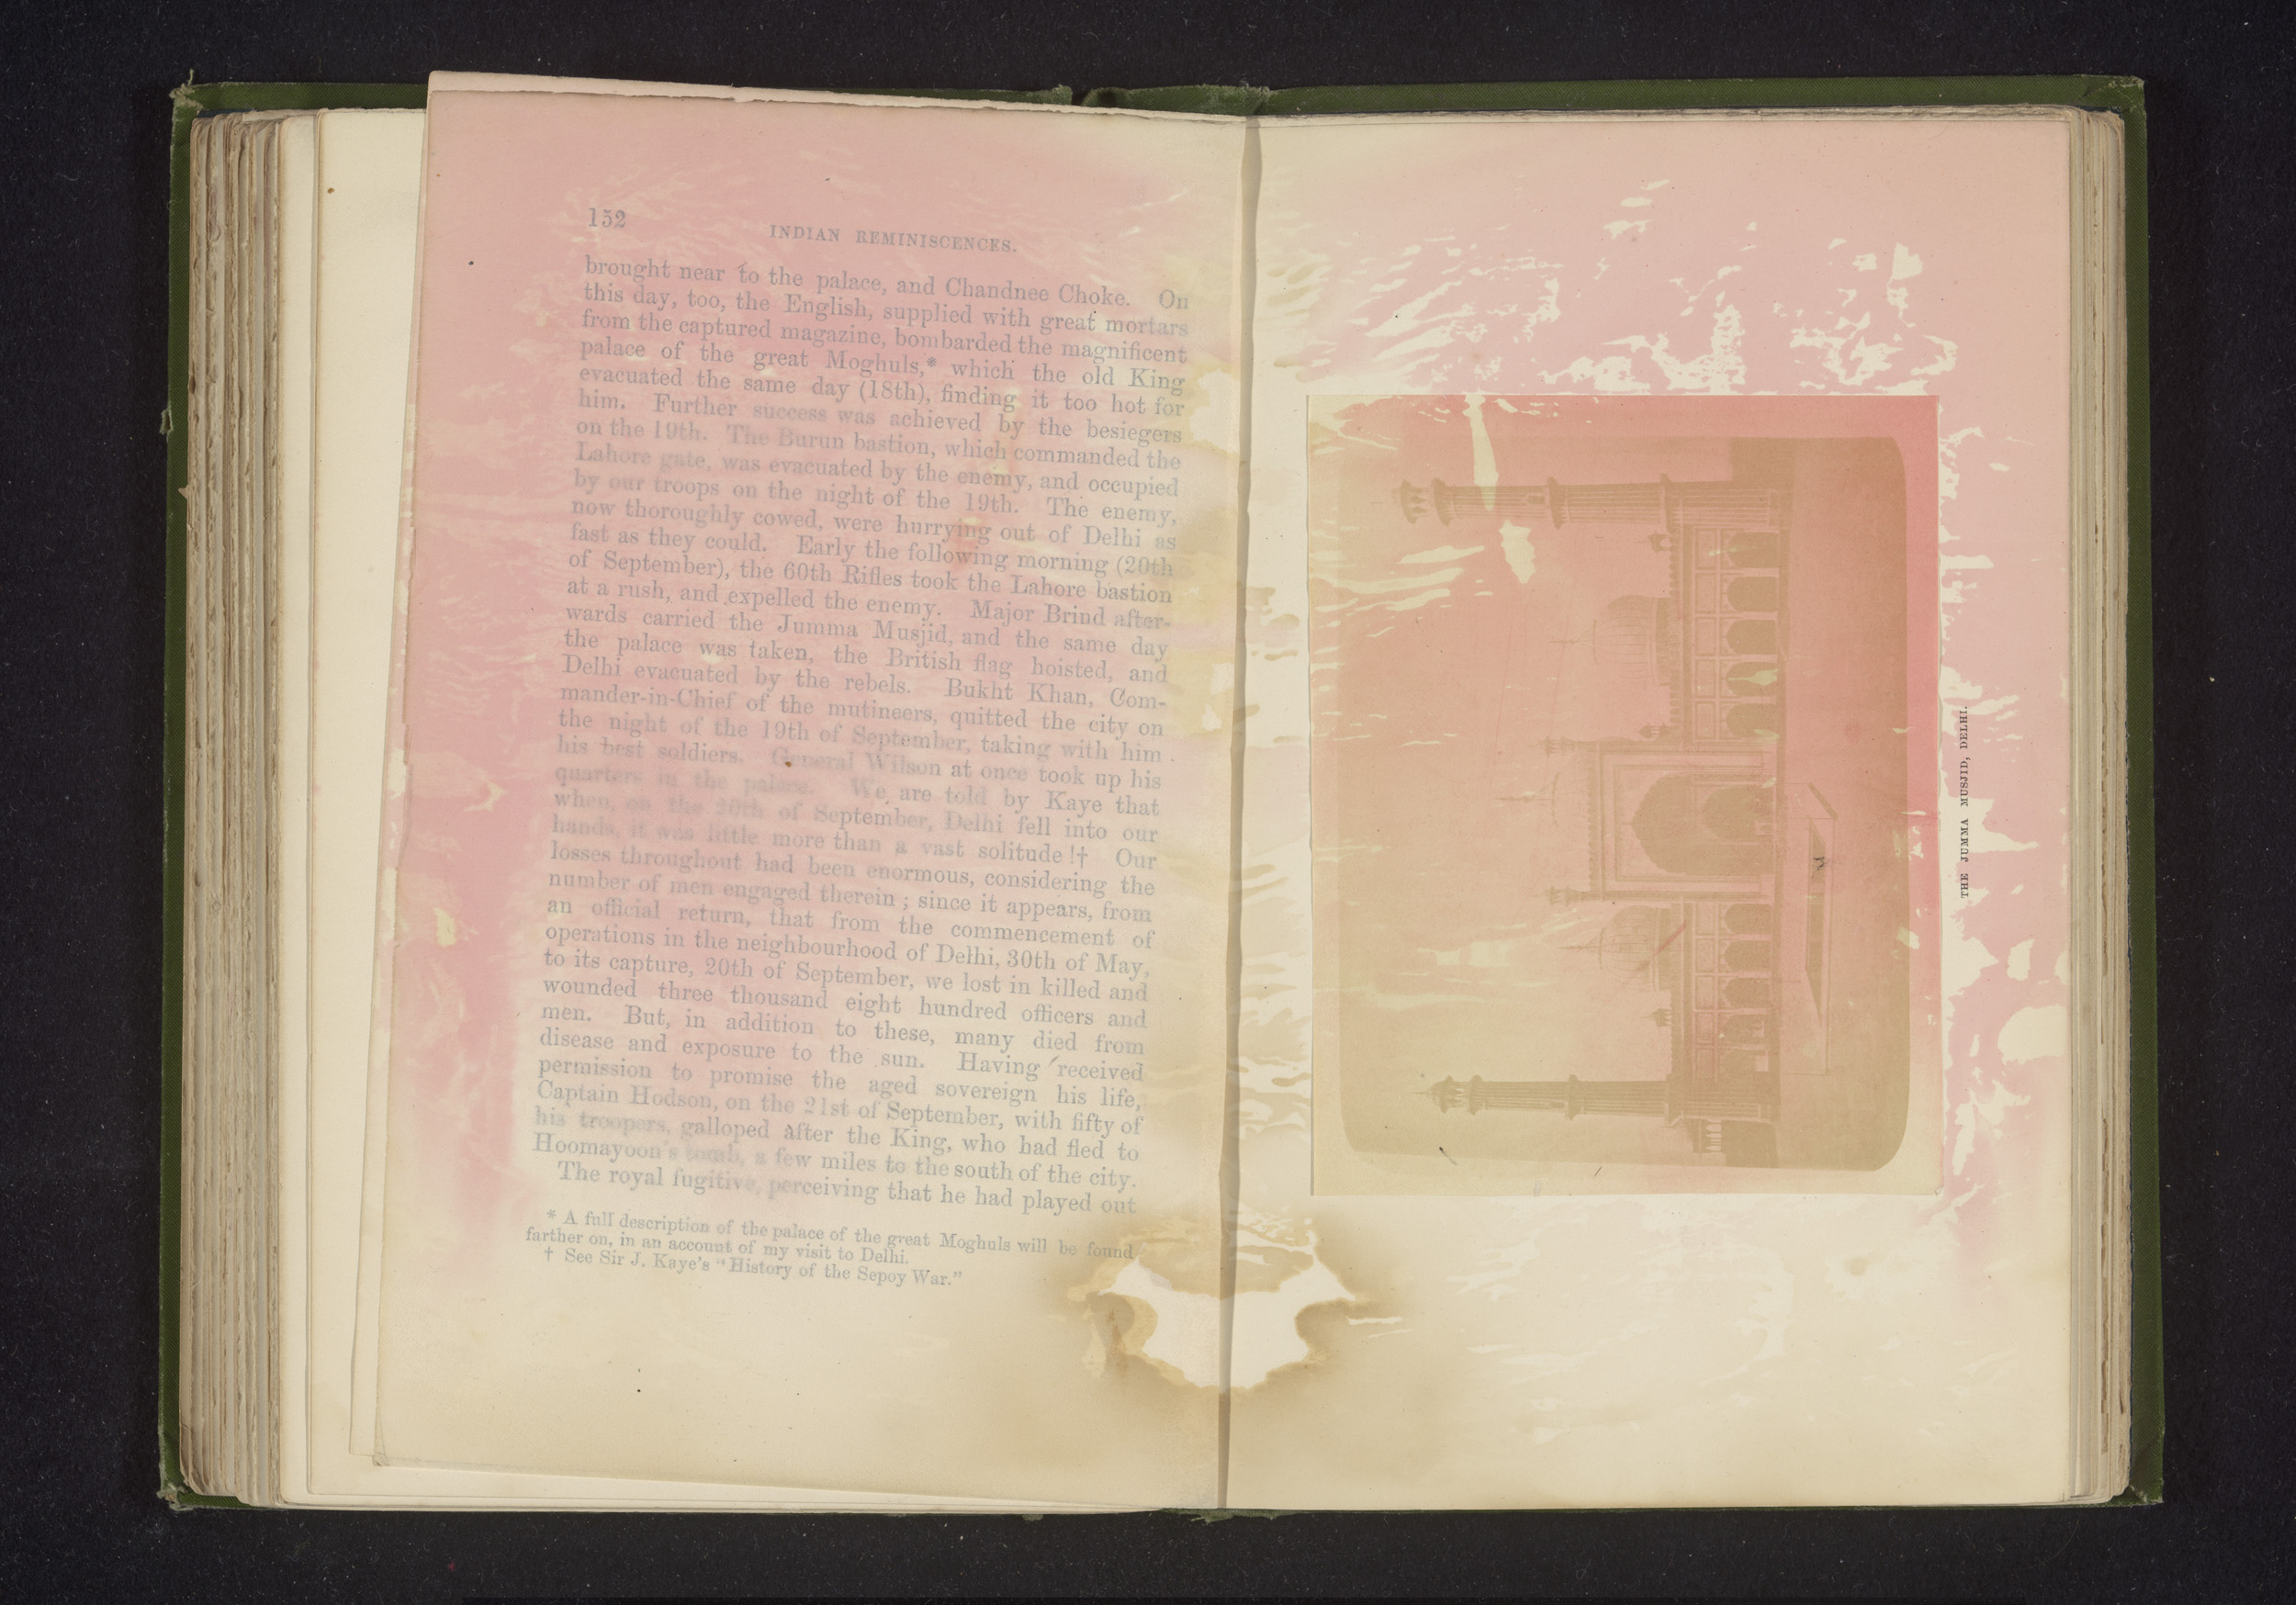 152
INDIAN REMINISCENCES.
brought near to the palace, and Chandnee Choke. On
this day, too, the English, supplied with great mortars
from the captured magazine, bombarded the magnificent
palace of the great Moghuls,* which the old King
evacuated the same day (18th), finding it too hot for
him. Further success was achieved by the besiegers
on the 19th. The Burun bastion, which commanded the
Lahore gate, was evacuated by the enemy, and occupied
by our troops on the night of the 19th. The enemy,
now thoroughly cowed, were hurrying out of Delhi as
fast as they could. Early the following morning (20th
of September), the 60th Rifles took the Lahore bastion
at a rush, and expelled the enemy. Major Brind after-
wards carried the Jumma Musjid, and the same day
the palace was taken, the British flag hoisted, and
Delhi evacuated by the rebels. Bukht Khan, Com-
mander-in-Chief of the mutineers, quitted the city on
the night of the 19th of September, taking with him
his best soldiers. General Wilson at once took up his
quarters in the palace. We are told by Kaye that
when, on the 20th of September, Delhi fell into our
hands, it was little more than a vast solitude!† Our
losses throughout had been enormous, considering the
number of men engaged therein; since it appears, from
an official return, that from the commencement of
operations in the neighbourhood of Delhi, 30th of May,
to its capture, 20th of September, we lost in killed and
wounded three thousand eight hundred officers and
men. But, in addition to these, many died from
disease and exposure to the sun. Having received
permission to promise the aged sovereign his life,
Captain Hodson, on the 21st of September, with fifty of
his troopers, galloped after the King, who had fled to
Hoomayoon's tomb, a few miles to the south of the city.
The royal fugitive, perceiving that he had played out
* A full description of the palace of the great Moghuls will be found
farther on, in an account of my visit to Delhi.
† See Sir J. Kaye's "History of the Sepoy War."
THE JUMMA MUSJID, DELHI.